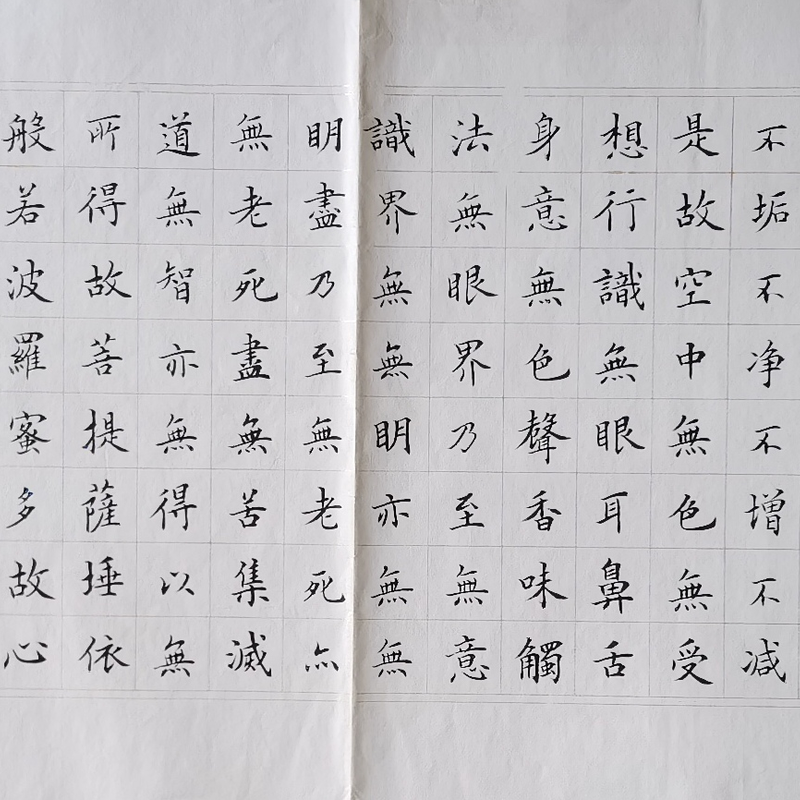 不垢不净不增不减
是故空中無色無受
想行識無眼耳鼻舌
身意無色聲香味觸
法無眼界乃至無意
識界無無明亦無無
明盡乃至無老死亦
無老死盡無苦集滅
道無智亦無得以無
所得故菩提薩埵依
般若波羅蜜多故心